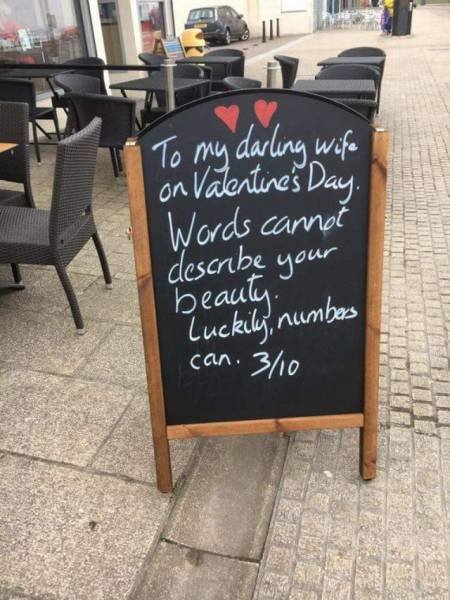 To my darling wife
on Valentine's Day.
Words cannot
describe your
beauty.
Luckily, numbers
can. 3/10